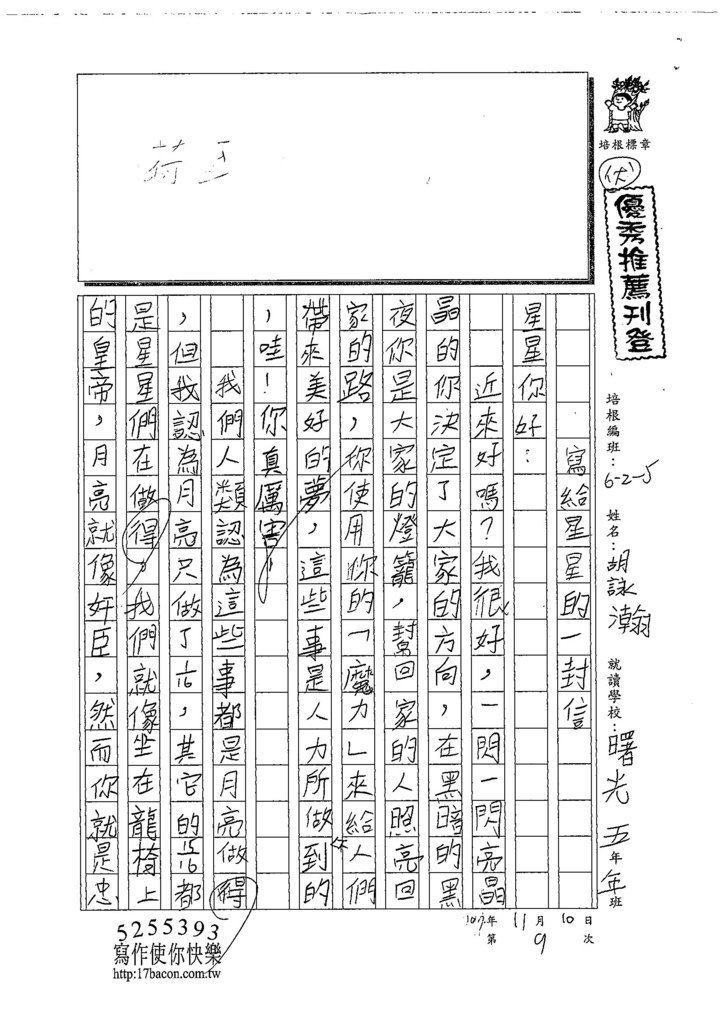 培根標章
優秀推薦刊登
培根編班：6-2-5 姓名：胡詠瀚 就讀學校：曙光 五年 年班
107年11月10日
第9次
寫給星星的一封信
星星你好：
近來好嗎？我很好，一閃一閃亮晶
晶的你決定了大家的方向，在黑暗的黑
夜你是大家的燈籠，幫回家的人照亮回
家的路，你使用你的「魔力」來給人們
帶來美好的夢，這些事是人力所做不到的
，哇！你真厲害！
我們人類認為這些事都是月亮做得
，但我認為月亮只做了1/16，其它的15/16都
是星星們在做得，我們就像坐在龍椅上
的皇帝，月亮就像奸臣，然而你就是忠
5255393
寫作使你快樂
http:17bacon.com.tw